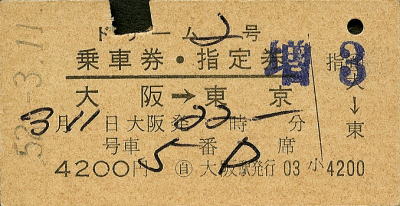 ドリーム2号
乗車券・指定券 増 指 3
大阪→東京 大→東
3月11日大阪発22時 分
号車 5番D席
4200円 自 大阪駅発行 03 小 4200
53.3.11